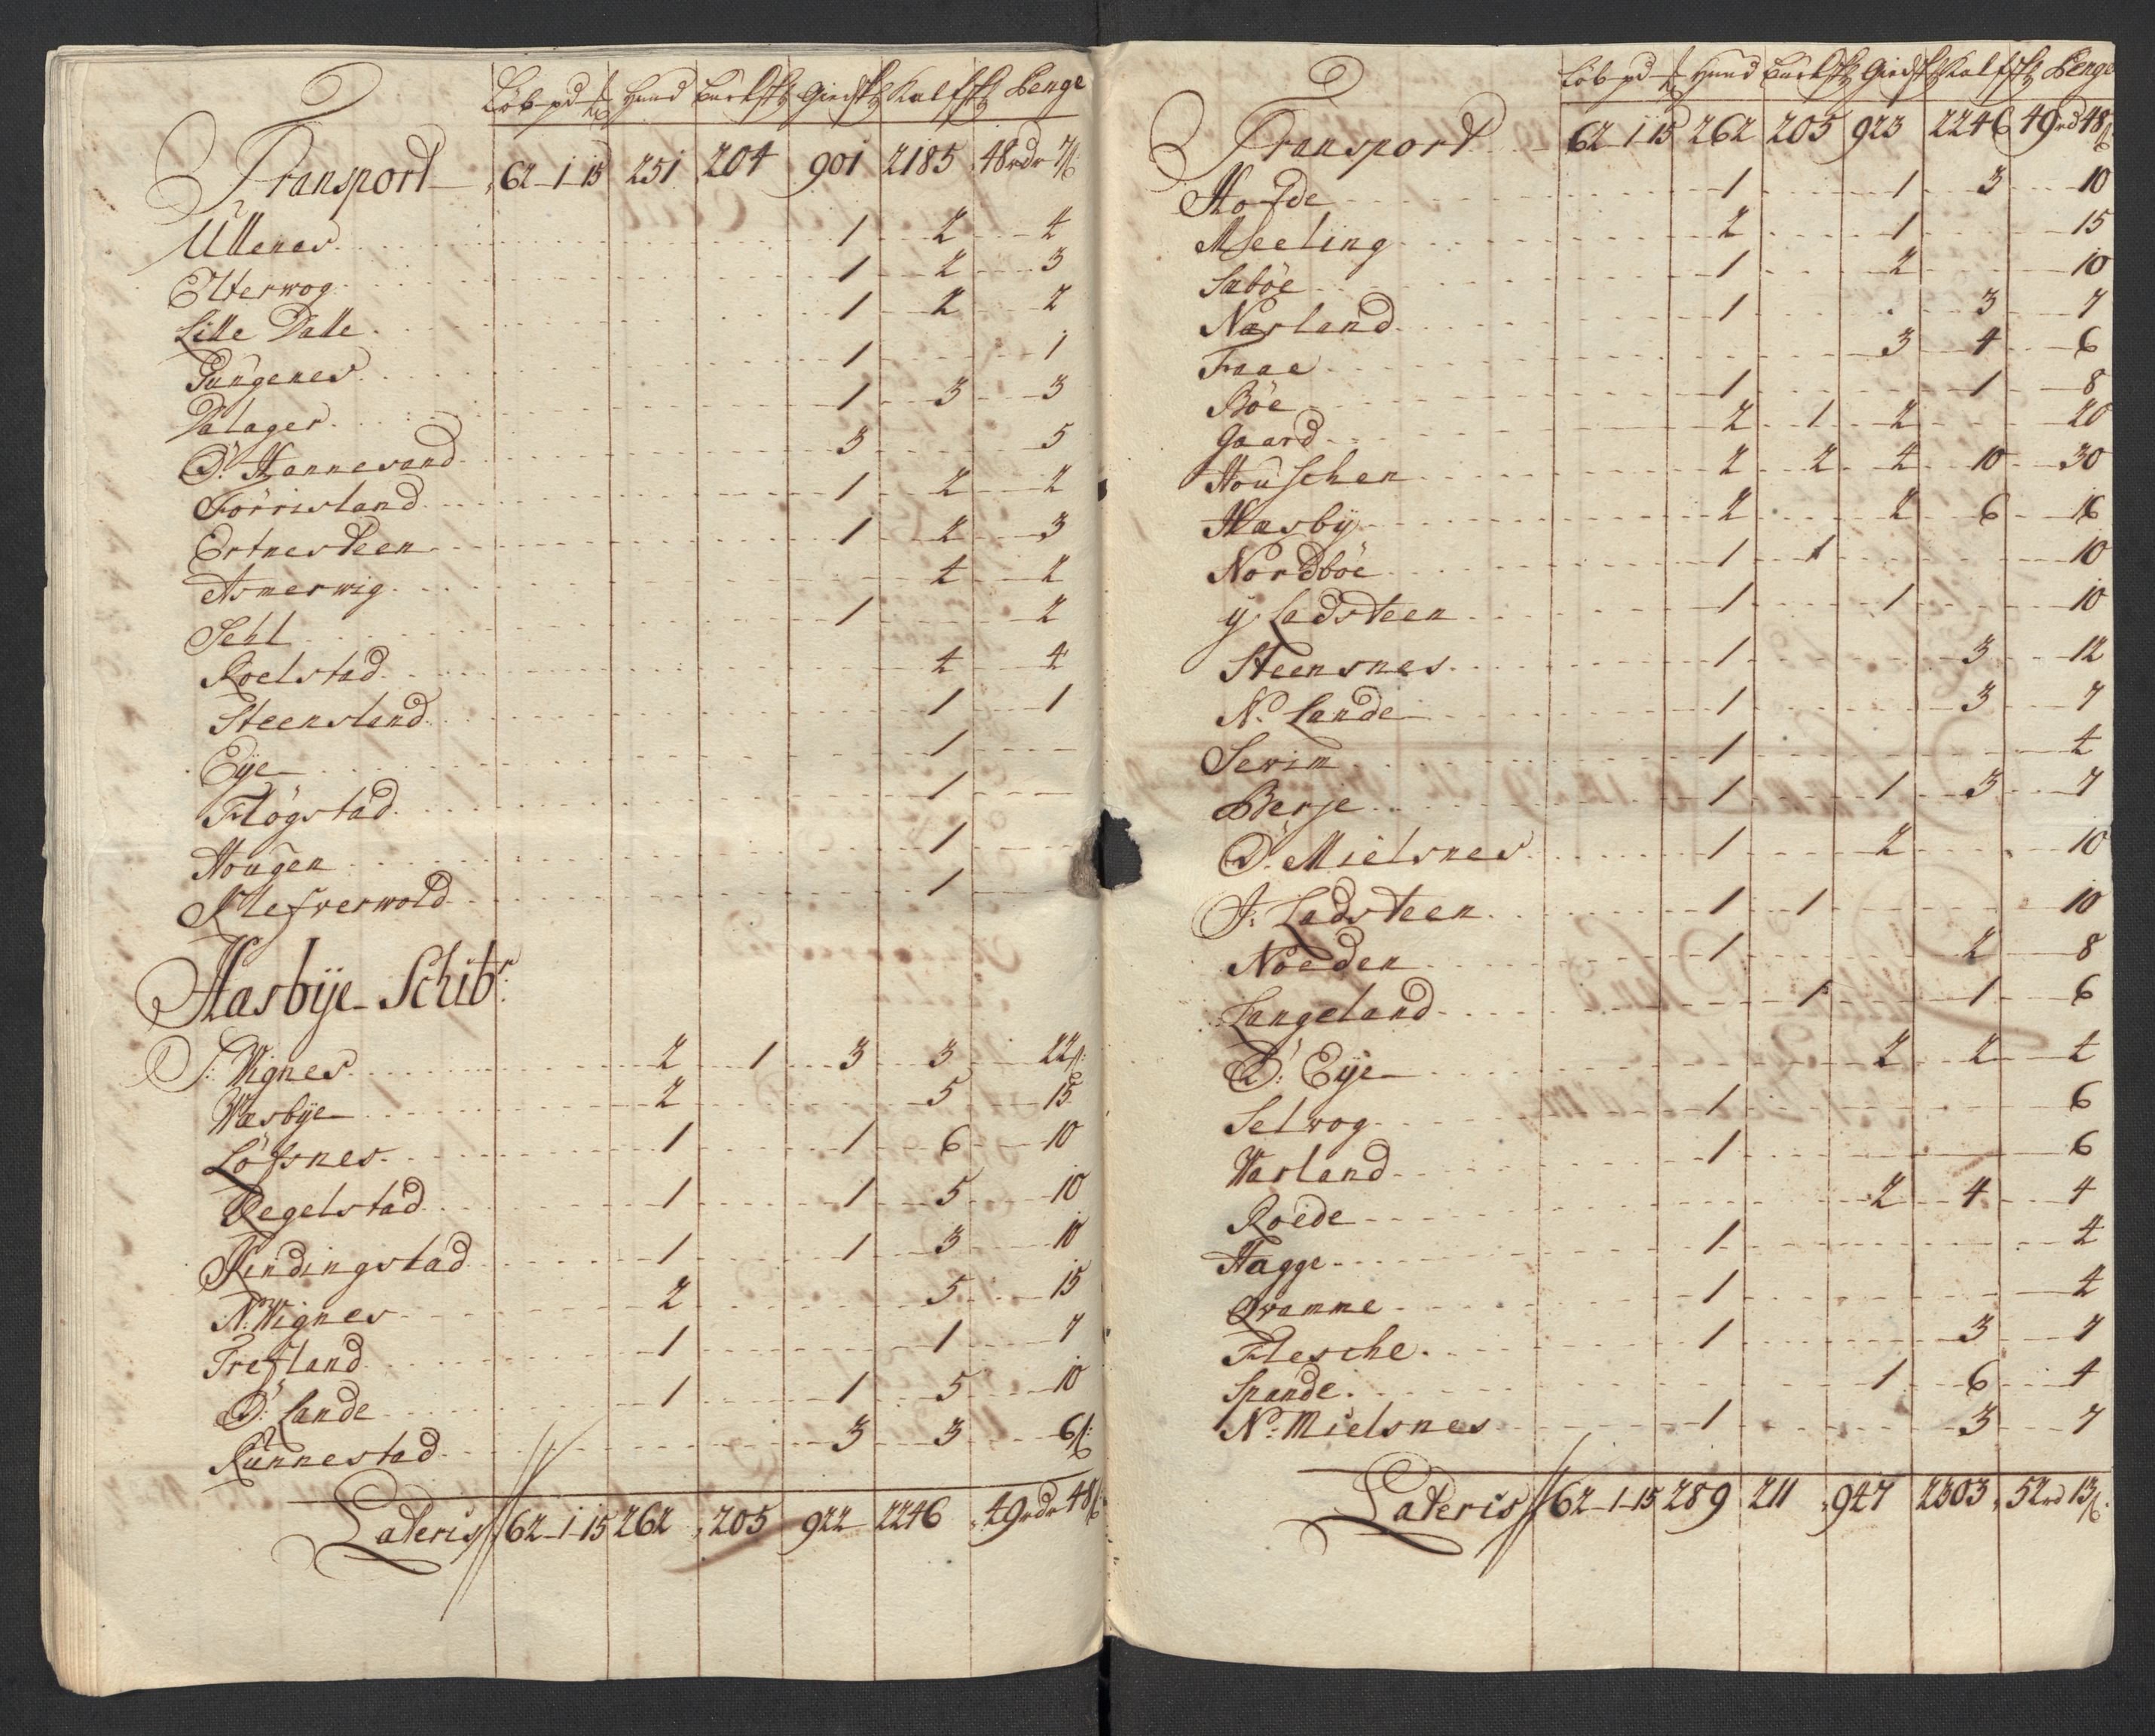 Löb pd Hund Bucksk Giedsk Kalfsk Penge
Transport 62-1-15 251 204 901 2185 48rdr 7ß
Ullenes 1 2 4
Elterwog 1 2 3
Lille Dalle 1 2 2
Pungenes 1 1
Dalager 1 3 3
D: Hannesand 3 5
Förrisland 1 2 2
Ertnesteen 1 2 3
Asmerwig 4 2
Sehl 1 2
Roelstad 4 4
Steensland 1 1
Eÿe 1
Flögstad 1
Hougen 1
Klefverwold 1
Hasbÿe Schibr:
S: Wignes 2 1 3 3 22ß
Wasbÿe 2 5 15
Löfsnes 1 1 6 10
Regelstad 1 1 5 10
Kindingstad 1 1 3 10
N: Wignes 2 5 15
Trefland 1 1 7
D: Lande 1 1 5 10
Runnestad 3 3 6ß
Lateris 62-1-15 262 205 922 2246 49rdr 48ß
Löb pd Hund Bucksk Giedsk Kalfsk Penge
Transport 62-1-15 262 205 923 2246 49rd 48ß
Hofde 1 1 3 10
Meeling 2 1 15
Sæböe 1 2 10
Nærland 1 3 7
Fraae 3 4 6
Böe 1 1 8
Gaard 2 1 2 20
Houschen 2 2 4 10 30
Hasbÿ 2 2 6 16
Nordböe 1 1 10
ÿ: Ladsteen 1 1 10
Steensnes 1 3 12
N: Lande 1 3 7
Serim 1 4
Berje 1 1 3 7
D: Mielsnes 1 2 10
I: Ladsteen 1 1 10
Noeden 1 2 8
Langeland 1 1 6
D: Eÿe 2 2 4
Selwog 1 6
Warland 1 6
Roede 2 4 4
Hagge 1 4
Qvamme 1 4
Flesche 1 3 7
Spande 1 6 4
N: Mielsnes 1 3 7
Lateris 62-1-15 289 211 947 2303 52rd 13ß